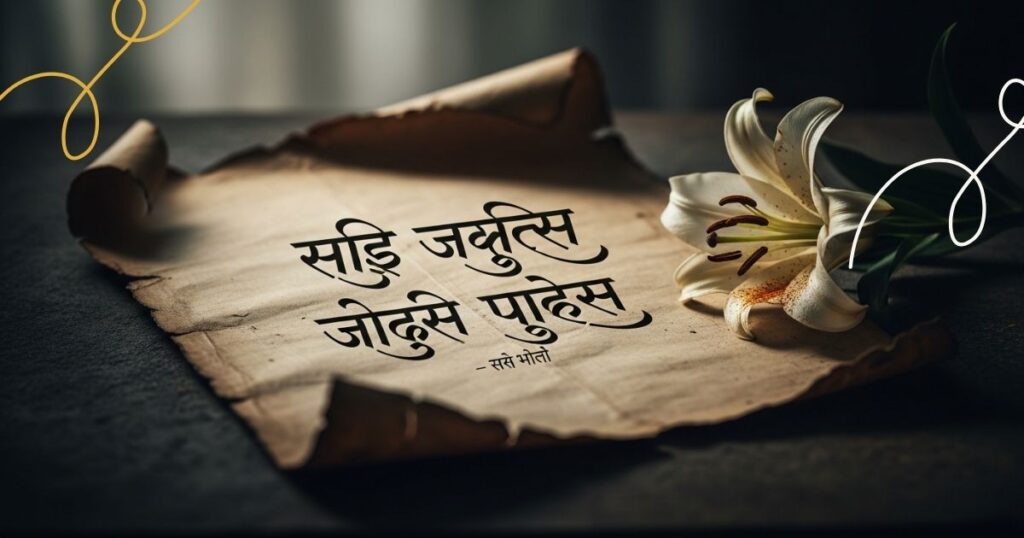 साड़ि जक्षुत्सि
जोदुसे पुाहेस
– ससे भोतो